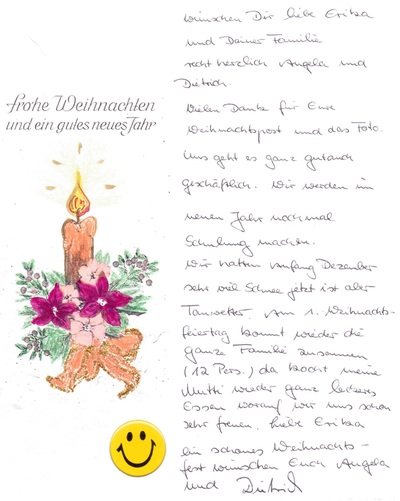 frohe Weihnachten
und ein gutes neues Jahr
wünschen Dir liebe Erika
und Deiner Familie
recht herzlich Angela und
Dietrich.
Vielen Dank für Eure
Weihnachtspost und das Foto.
Uns geht es ganz gut auch
geschäftlich. Wir werden im
neuen Jahr noch mal
Schulung machen.
Wir hatten Anfang Dezember
sehr viel Schnee jetzt ist aber
Tauwetter. Am 1. Weihnachts-
feiertag kommt wieder die
ganze Familie zusammen
(12 Pers.) da kocht meine
Mutti wieder ganz leckeres
Essen worauf wir uns schon
sehr freuen. Liebe Erika
ein schönes Weihnachts-
fest wünschen Euch Angela
und Dietrich